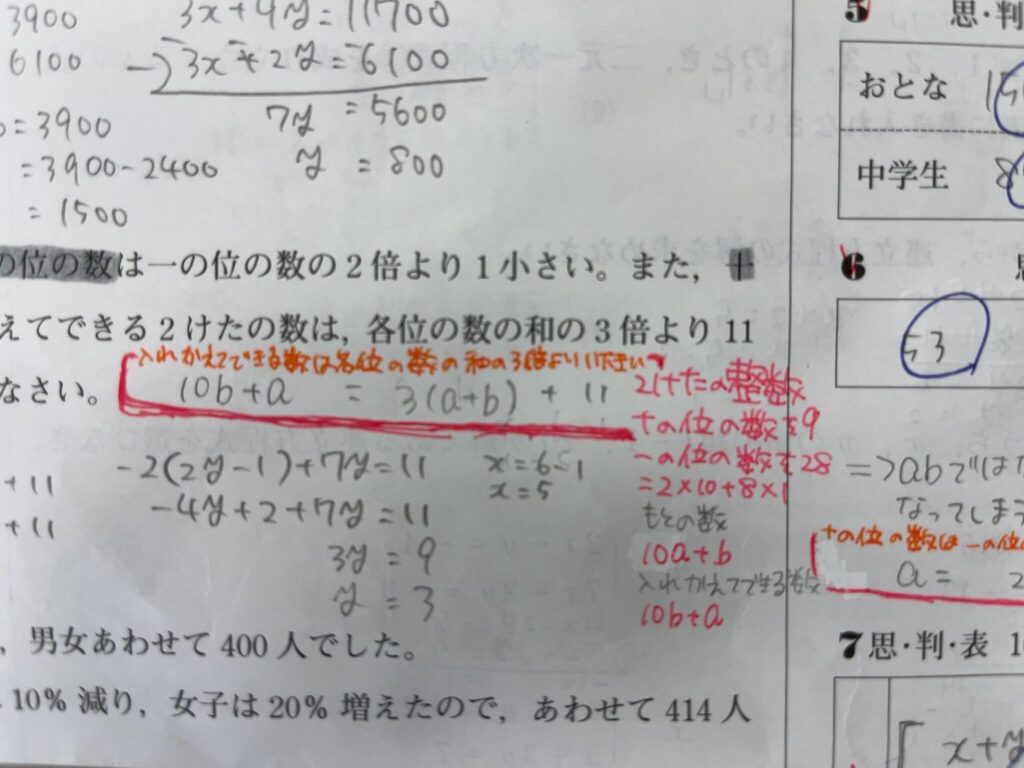 3900
3x+4y=11700
6100
-)3x+2y=6100
7y =5600
=3900
y =800
=3900-2400
=1500
の位の数は一の位の数の2倍より1小さい。また，十
えてできる2けたの数は，各位の数の和の3倍より11
入れかえてできる数は各位の数の和の3倍より11
なさい。
10b+a = 3(a+b) + 11
-2(2y-1)+7y=11
x=6-1
+11
x=5
-4y+2+7y=11
+11
3y=9
y=3
2けたの整数
十の位の数を9
一の位の数を28
=2×10+8×1
もとの数
10a+b
入れかえてできる数
10b+a
，男女あわせて400人でした。
10% 減り，女子は20% 増えたので，あわせて414人
5
思・判
おとな
中学生
6
思
53
=>abでは
なってしま
十の位の数は一の位
a= 2
7 思・判・表
x+y